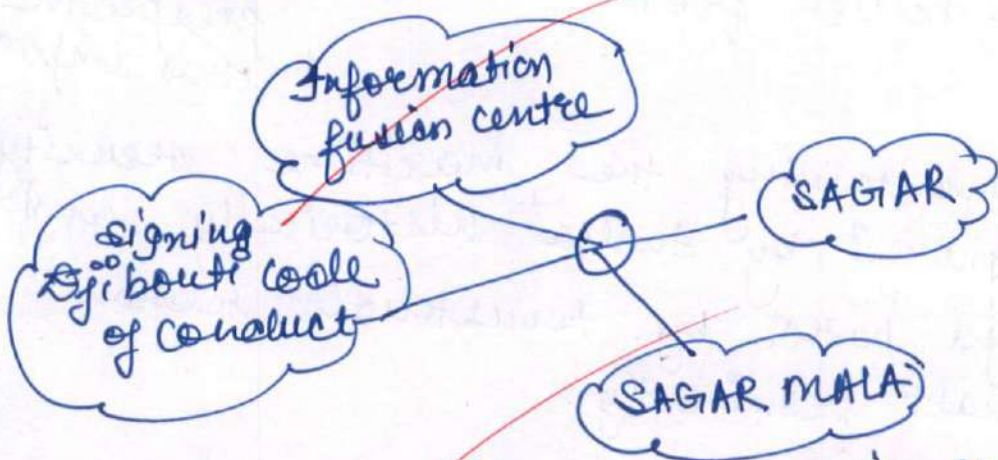 Information
fusion centre
SAGAR
signing
Djibouti code
of conduct
SAGAR MALA